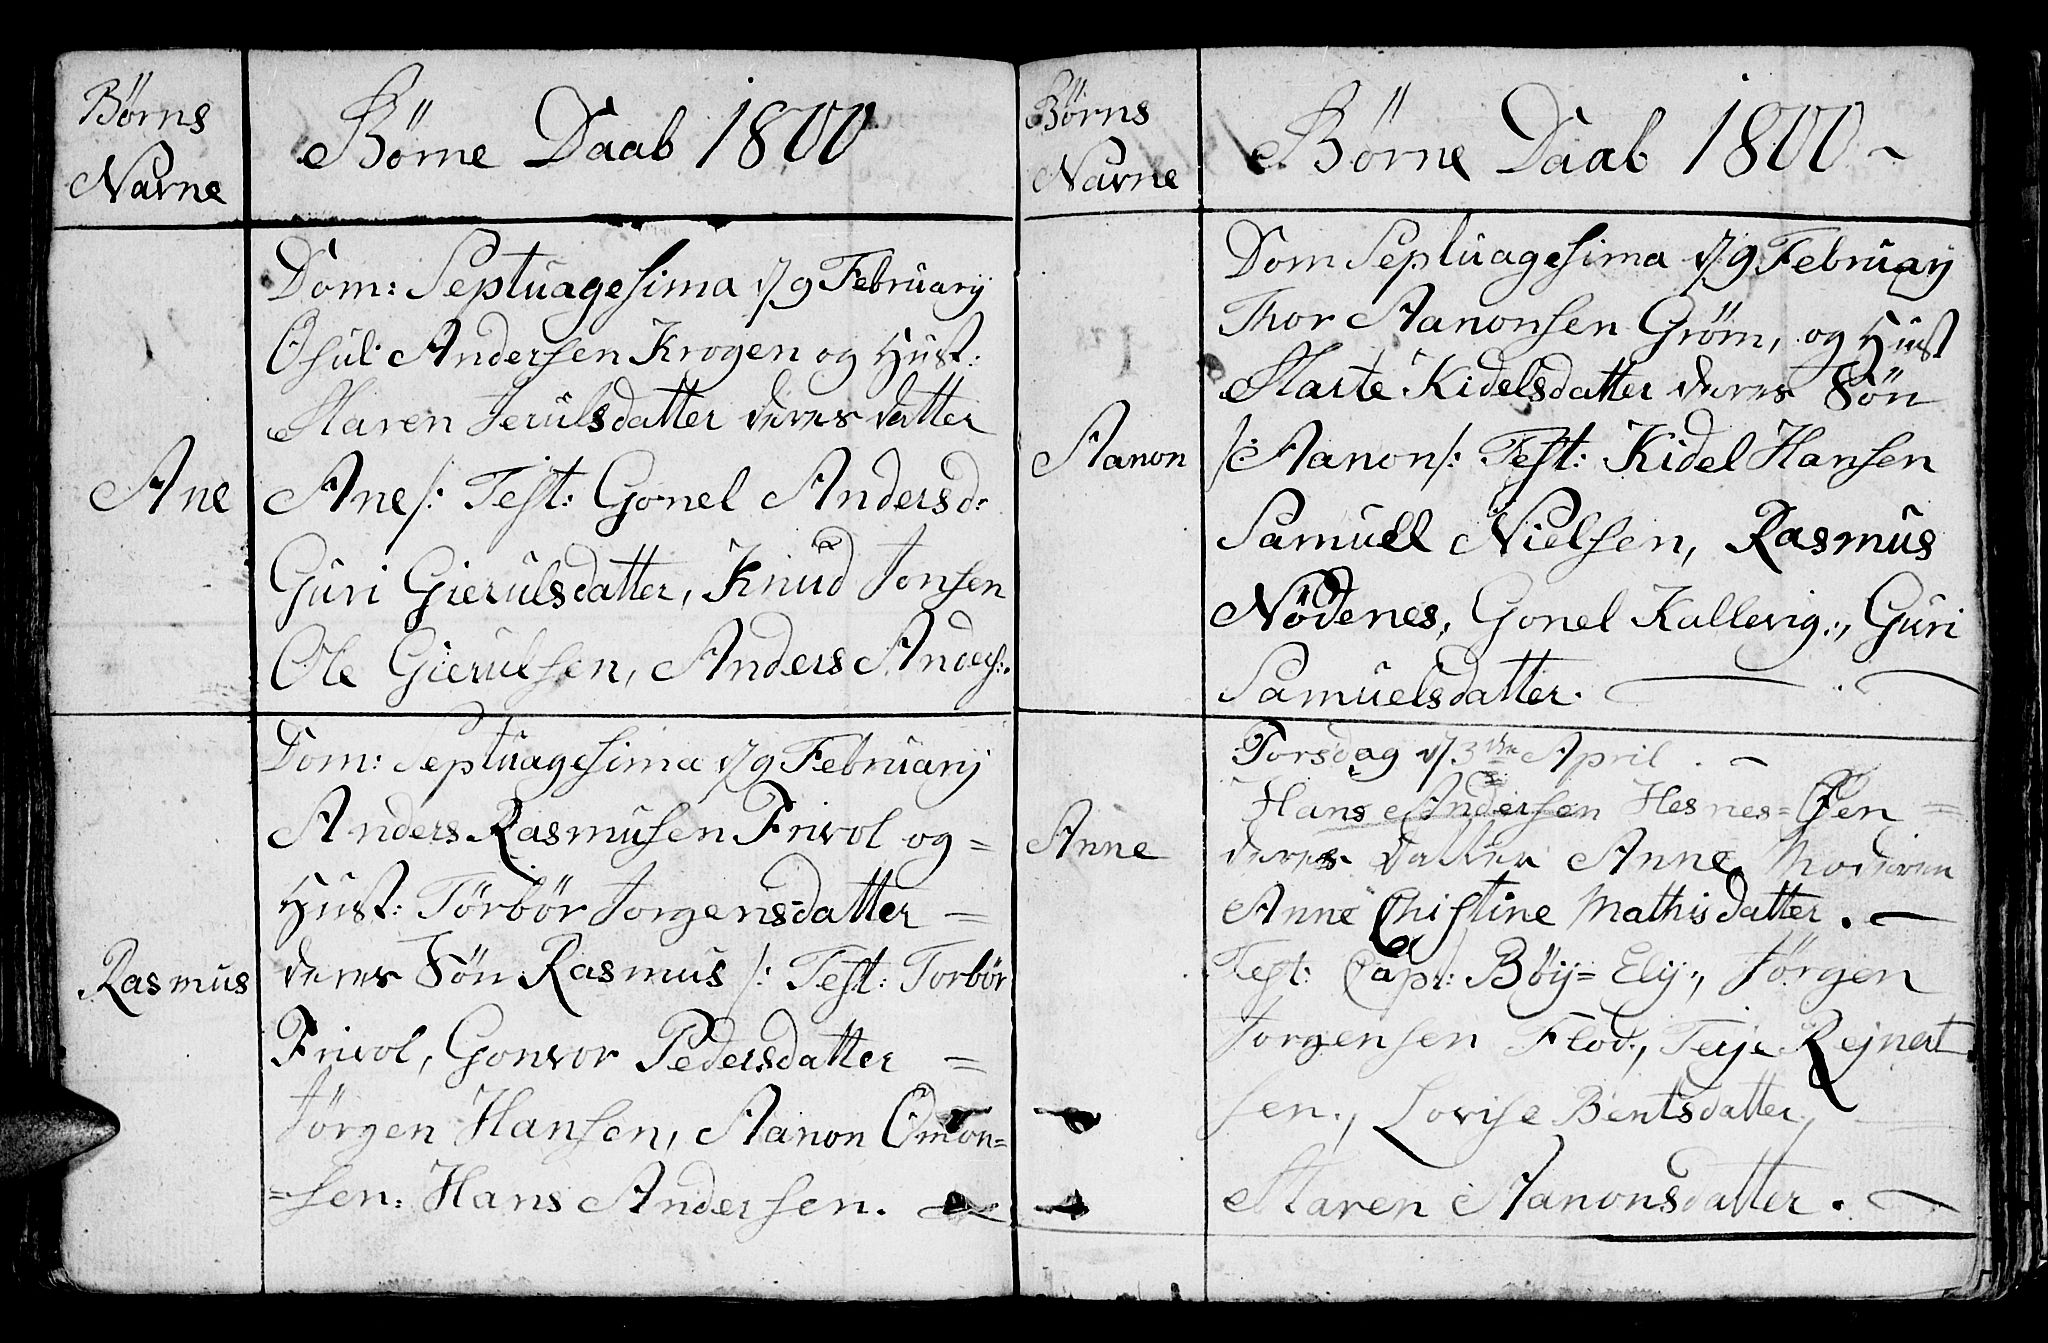 Børns
Navne
Børne Daab 1800
Dom: Septuagesima d/9 Februarij
Osul Andersen Krogen og Hust:
Maren Jerulsdatter deres datter
Ane
Ane/: Test: Gonel Andersd:
Guri Gierulsdatter, Knud Jonsen
Ole Gierulsen, Anders Anders:.
Dom: Septuagesima d/9 Februarij
Anders Rasmusen Frivol og=
Hust: Törbör Jorgensdatter =
Rasmus
deres Sön Rasmus /: Test: Torbör
Frivol, Gonvor Pedersdatter =
Jörgen Hansen, Aanon Omon=
=sen: Hans Andersen.
Børns
Navne
Børne Daab 1800 ~
Dom Septuagesima d/9 Februarij
Thor Aanonsen Gröm, og Hust
Marte Kidelsdatter deres Sön
Aanon
/:Aanon/: Test: Kidel Hansen
Samuel Nielsen, Rasmus
Nödenes, Gonel Kallevig:, Guri
Samuelsdatter.
Torsdag d/3die April . ~
Hans Andersen Hesnes=Öen =
Anne
deres datter Anne Moderen
Anne Christine Mathisdatter . ~
Test: Capt: Böij= Elij:, Jörgen
Jorgensen Flod:, Terje Rejnert
sen., Lovise Bentsdatter,
Maren Aanonsdatter. ~